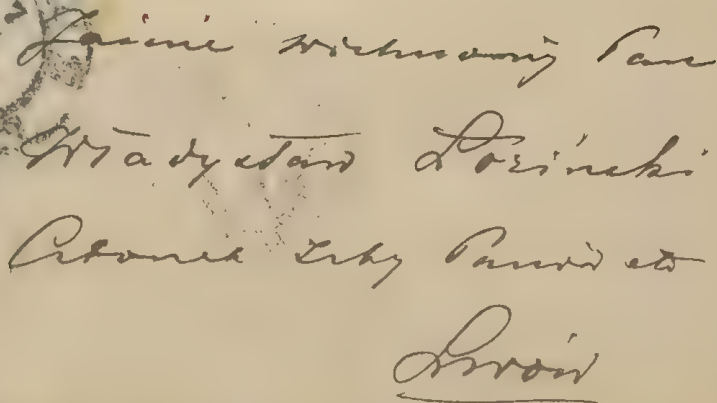 Jaśnie wielmożny Pan
Władysław Łoziński
Członek Izby Panów etc
Lwów